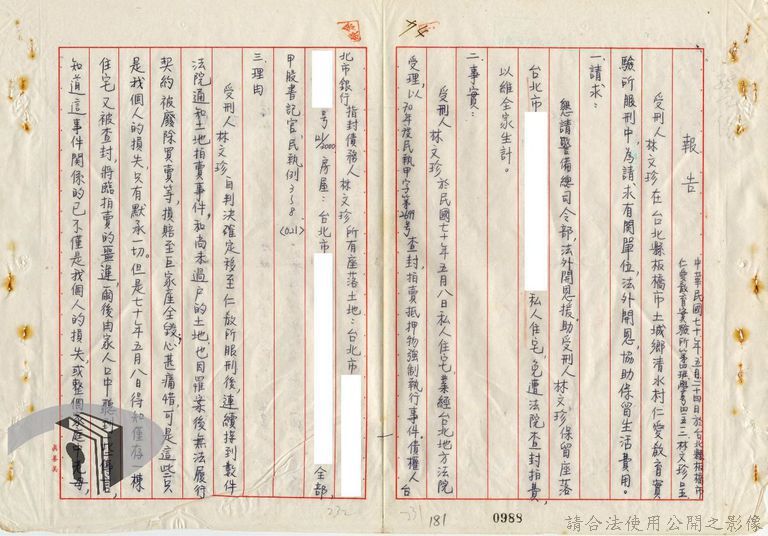 報告
中華民國七十年五月二十四日於台北縣板橋市
仁愛教育實驗所第四班學號四五三林文珍呈
受刑人林文珍在台北縣板橋市土城鄉清水村仁愛教育實
驗所服刑中,為請求有關單位,法外開恩,協助保留生活費用。
一請求:
懇請警備總司令部,法外開恩援助受刑人林文珍保留座落
台北市 私人住宅,免遭法院查封拍賣,
以維全家生計。
二事實:
受刑人林文珍於民國七十年五月八日私人住宅,業經台北地方法院
受理,以70年度民執甲字第 號查封,拍賣抵押物強制執行事件,債權人台
北市銀行指封債務人林文珍所有座落土地:台北市
號 房屋:台北市 全部,
甲股書記官,民執例358(021)
三理由
受刑人林文珍自判決確定移至仁教所服刑後,連續接到數件
法院通知土地拍賣事件,和尚未過戶的土地,也因罪案後無法履行
契約被廢除買賣等,損賠至巨家產全毀,心甚痛惜,可是這些只
是我個人的損失,只有默承一切。但是七十年五月八日得知僅存一棟
住宅又被查封,將臨拍賣的噩進,爾後由家人口中聽到
知道這事件關係的已不僅是我個人的損失,或整個家庭
181
0988
231
232
請合法使用公開之影像